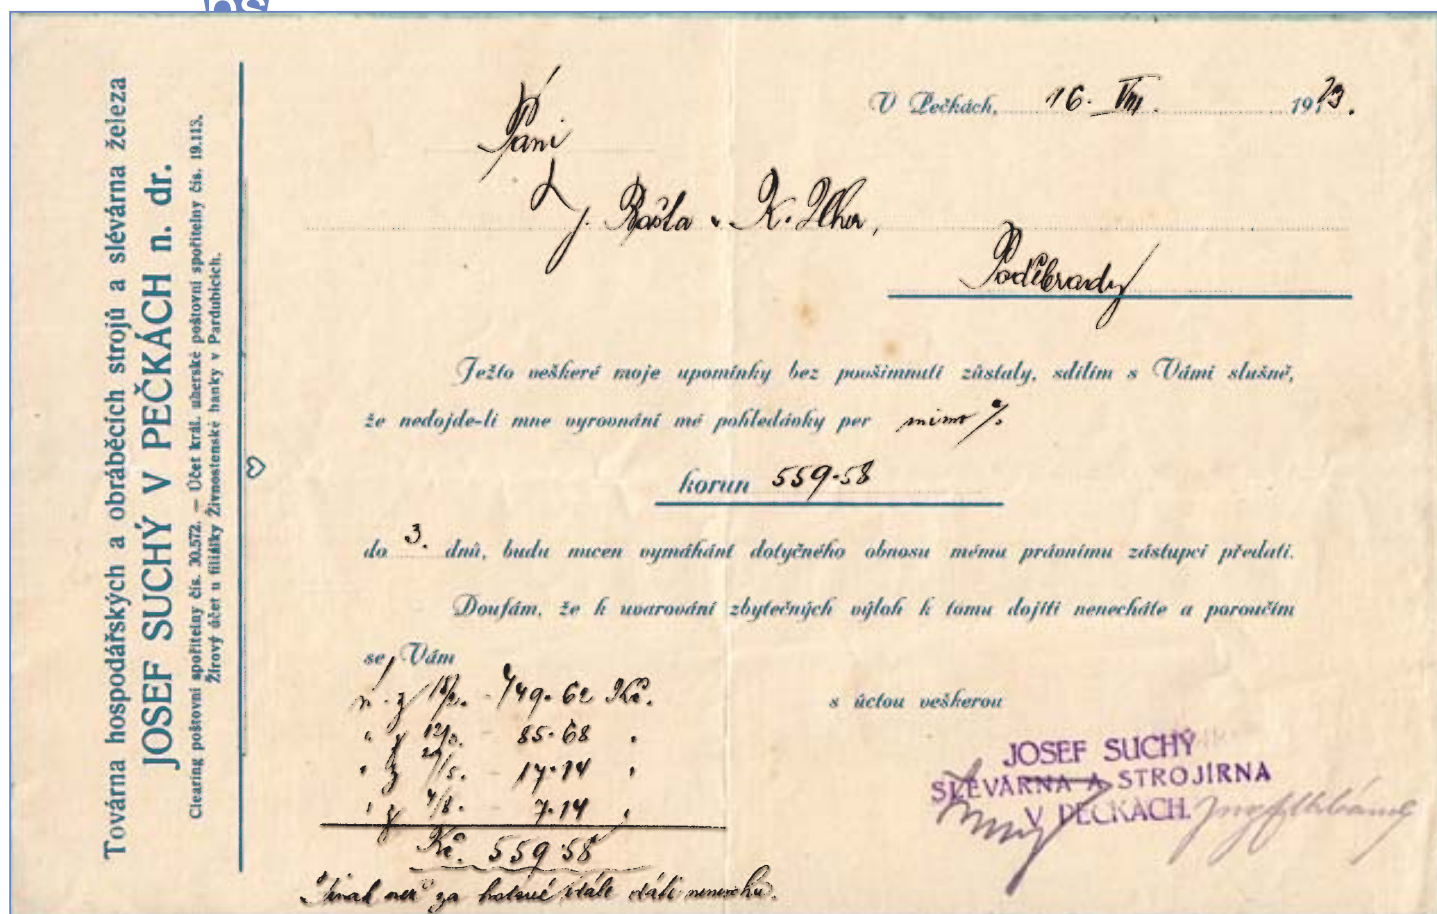 Továrna hospodářských a obráběcích strojů a slévárna železa
JOSEF SUCHÝ V PEČKÁCH n. dr.
Clearing poštovní spořitelny čís. 30.572. — Účet král. uherské poštovní spořitelny čís. 19.113.
Žirový účet u filiálky Živnostenské banky v Pardubicích.
V Pečkách, 16. VIII. 1923.
Páni
J. Bašta K.
Poděbrady
Ježto veškeré moje upomínky bez povšimnutí zůstaly, sdílím s Vámi slušně,
že nedojde-li mne vyrovnání mé pohledávky per mimo %
korun 559·58
do 3. dnů, budu nucen vymáhání dotyčného obnosu mému právnímu zástupci předati.
Doufám, že k uvarování zbytečných výloh k tomu dojíti nenecháte a poroučím
se Vám
449·62 Kč.
85·68
17·14
7·14
Kč. 559·58
za hotové dále dáti
s úctou veškerou
JOSEF SUCHÝ
SLÉVÁRNA A STROJÍRNA
V PEČKÁCH.